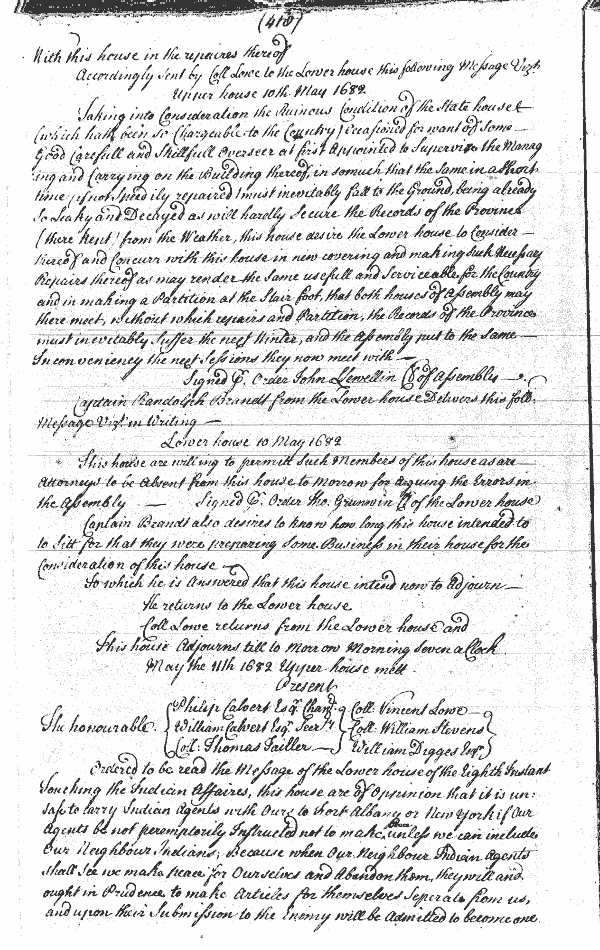 (418)
With this house in the repaires thereof
Accordingly sent by Coll Lowe to the Lower house this following Message Vizt.
Upper house 10th. May 1682
Taking into Consideration the Ruinous Condition of the State house
(which hath been so Chargeable to the Country) occasioned for want of some
Good Carefull and Skillfull Overseer at first Appointed to Supervise the Manag
ing and Carrying on the Building thereof, in so much that the same in a short
time if not Speedily repaired must inevitably fall to the Ground, being already
So Leaky and Decayed as will hardly Secure the Records of the Province
(there Kept) from the Weather, this house desire the Lower house to Consider
thereof and Concurr with this house in new covering and making Such Necessary
Repairs thereof as may render the same usefull and Serviceable for the Country
and in making a Partition at the Stair foot, that both houses of Assembly may
there meet, without which repairs and Partition, the Records of the Province
must inevitably Suffer the next Winter, and the Assembly put to the same
Inconveniency the next Sessions they now meet with
Signed P. Order John Llewellin Cl of Assembly
Captain Randolph Brandt from the Lower house Delivers this foll:
Message Vizt. in Writing
Lower house 10 May 1682
This house are willing to permitt Such Members of this house as are
Attorneys to be Absent from this house to Morrow for arguing the Errors in
the Assembly Signed P. Order Tho. Grunwin Cl of the Lower house
Captain Brandt also desires to know how long this house intended to
to Sitt for that they were preparing some Business in their house for the
Consideration of this house
To which he is Answered that this house intend now to Adjourn
He returns to the Lower house
Coll Lowe returns from the Lower house and
This house Adjourns till to Morrow Morning Seven a Clock
May the 11th 1682 Upper house mett
Present
The honourable
Philip Calvert Esqr. Chanr.
William Calvert Esqr. Secry
Coll: Thomas Tailler
Coll: Vincent Lowe
Coll: William Stevens
William Digges Esqr.
Ordered to be read the Message of the Lower house of the Eighth Instant
Touching the Indian Affaires, this house are of Oppinion that it is un:
safe to carry Indian Agents with Ours to Fort Albany or New York if Our
Agents be not peremptorily Instructed not to make peace unless we can include
Our Neighbour Indians; Because when Our Neighbour Indian Agents
shall See we make peace for Ourselves and Abandon them, they will and
ought in Prudence to make Articles for themselves Seperate from us,
and upon their Submission to the Enemy will be Admitted to become one